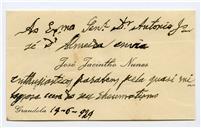 Ao Exmo Senr. Dr Antonio Jo
sé d'Almeida envia
José Jacintho Nunes
enthusiasticos parabens pela quasi mi
lagrosa cura do seu rheumatismo
Grandola 19-6-924